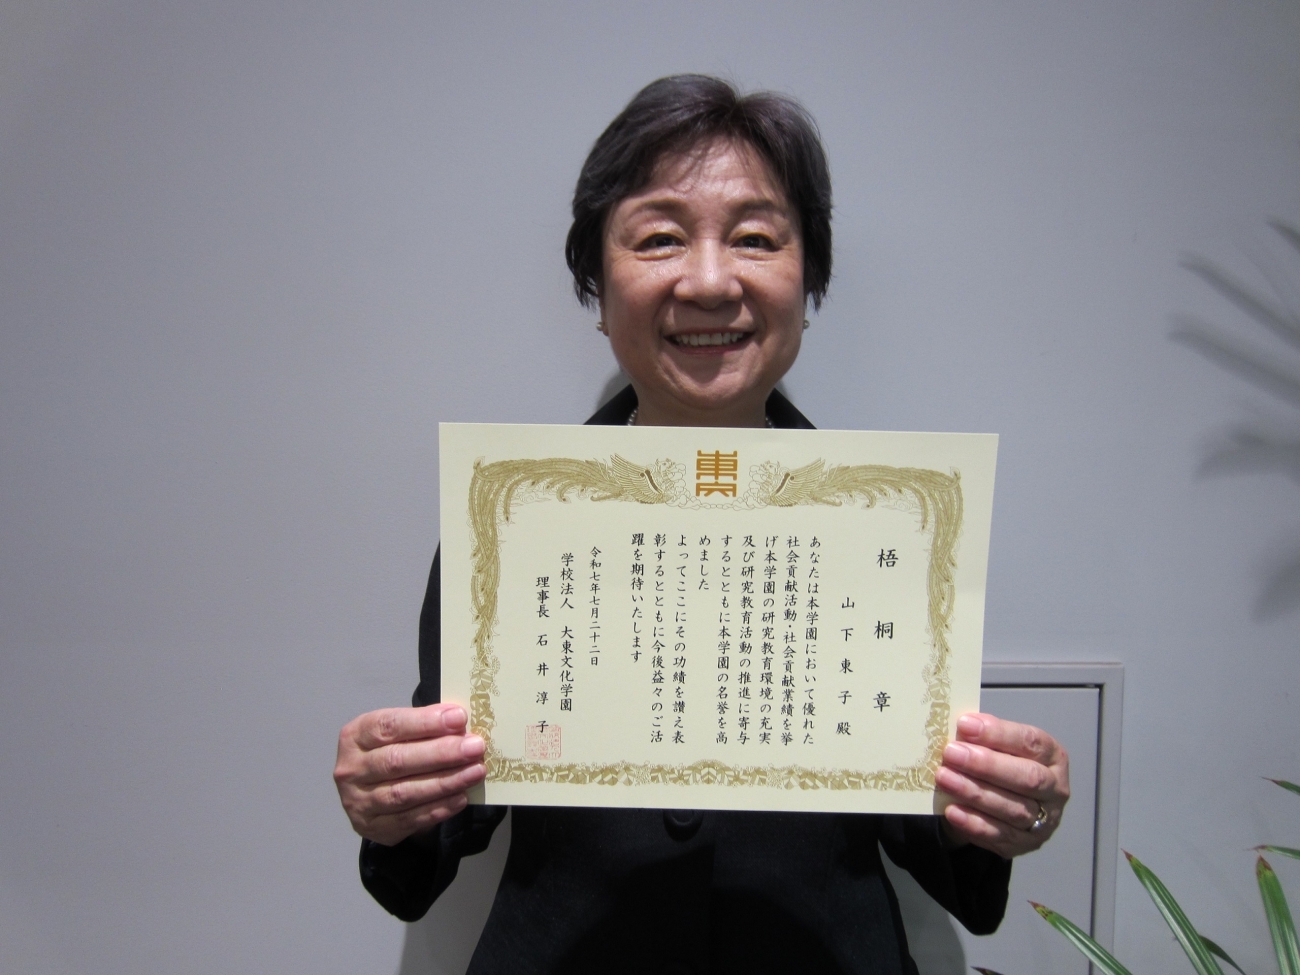 東文
梧桐章
山下東子殿
あなたは本学園において優れた
社会貢献活動・社会貢献業績を挙
げ本学園の研究教育環境の充実
及び研究教育活動の推進に寄与
するとともに本学園の名誉を高
めました
よってここにその功績を讃え表
彰するとともに今後益々のご活
躍を期待いたします
令和七年七月二十二日
学校法人 大東文化学園
理事長 石井淳子